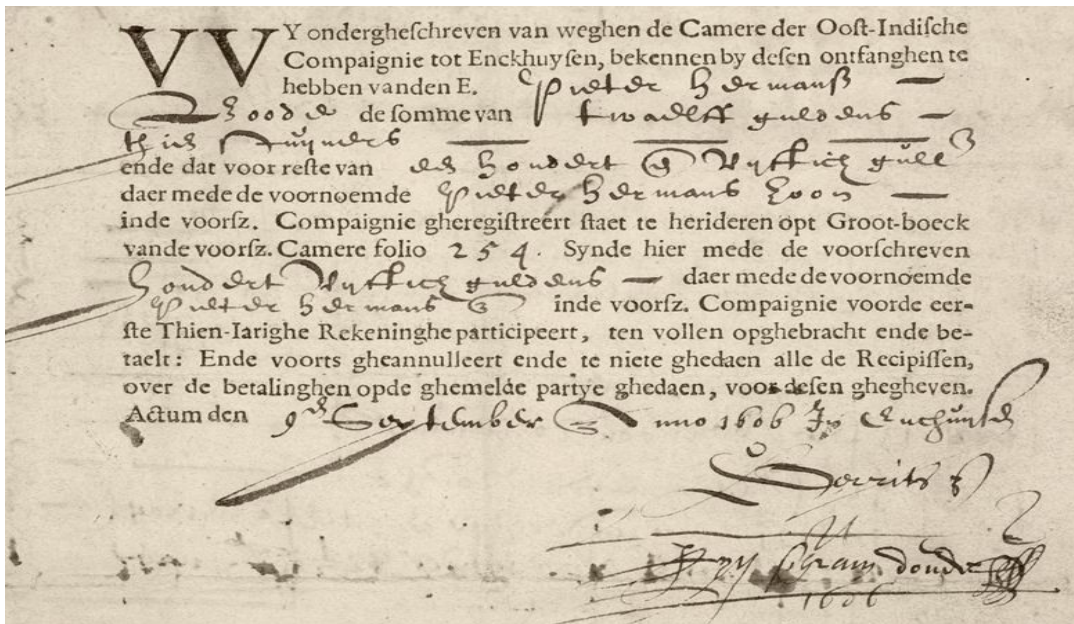 VVY ondergheſchreven van weghen de Camere der Ooſt-Indiſche
Compaignie tot Enckhuyſen, bekennen by deſen ontfanghen te
hebben vanden E. Pieter Hermansz
de ſomme van twaelff guldens
ende dat voor reſte van een hondert vyftich
daer mede de voornoemde Pieter Hermans zoon
inde voorſz. Compaignie gheregiſtreert ſtaet te herideren opt Groot-boeck
vande voorſz. Camere folio 254. Synde hier mede de voorſchreven
hondert vyftich guldens daer mede de voornoemde
Pieter Hermans inde voorſz. Compaignie voorde eer-
ſte Thien-Iarighe Rekeninghe participeert, ten vollen opghebracht ende be-
taelt: Ende voorts gheannulleert ende te niete ghedaen alle de Recipiſſen,
over de betalinghen opde ghemelde partye ghedaen, voor deſen ghegheven.
Actum den 9 September Anno 1606 In
1606